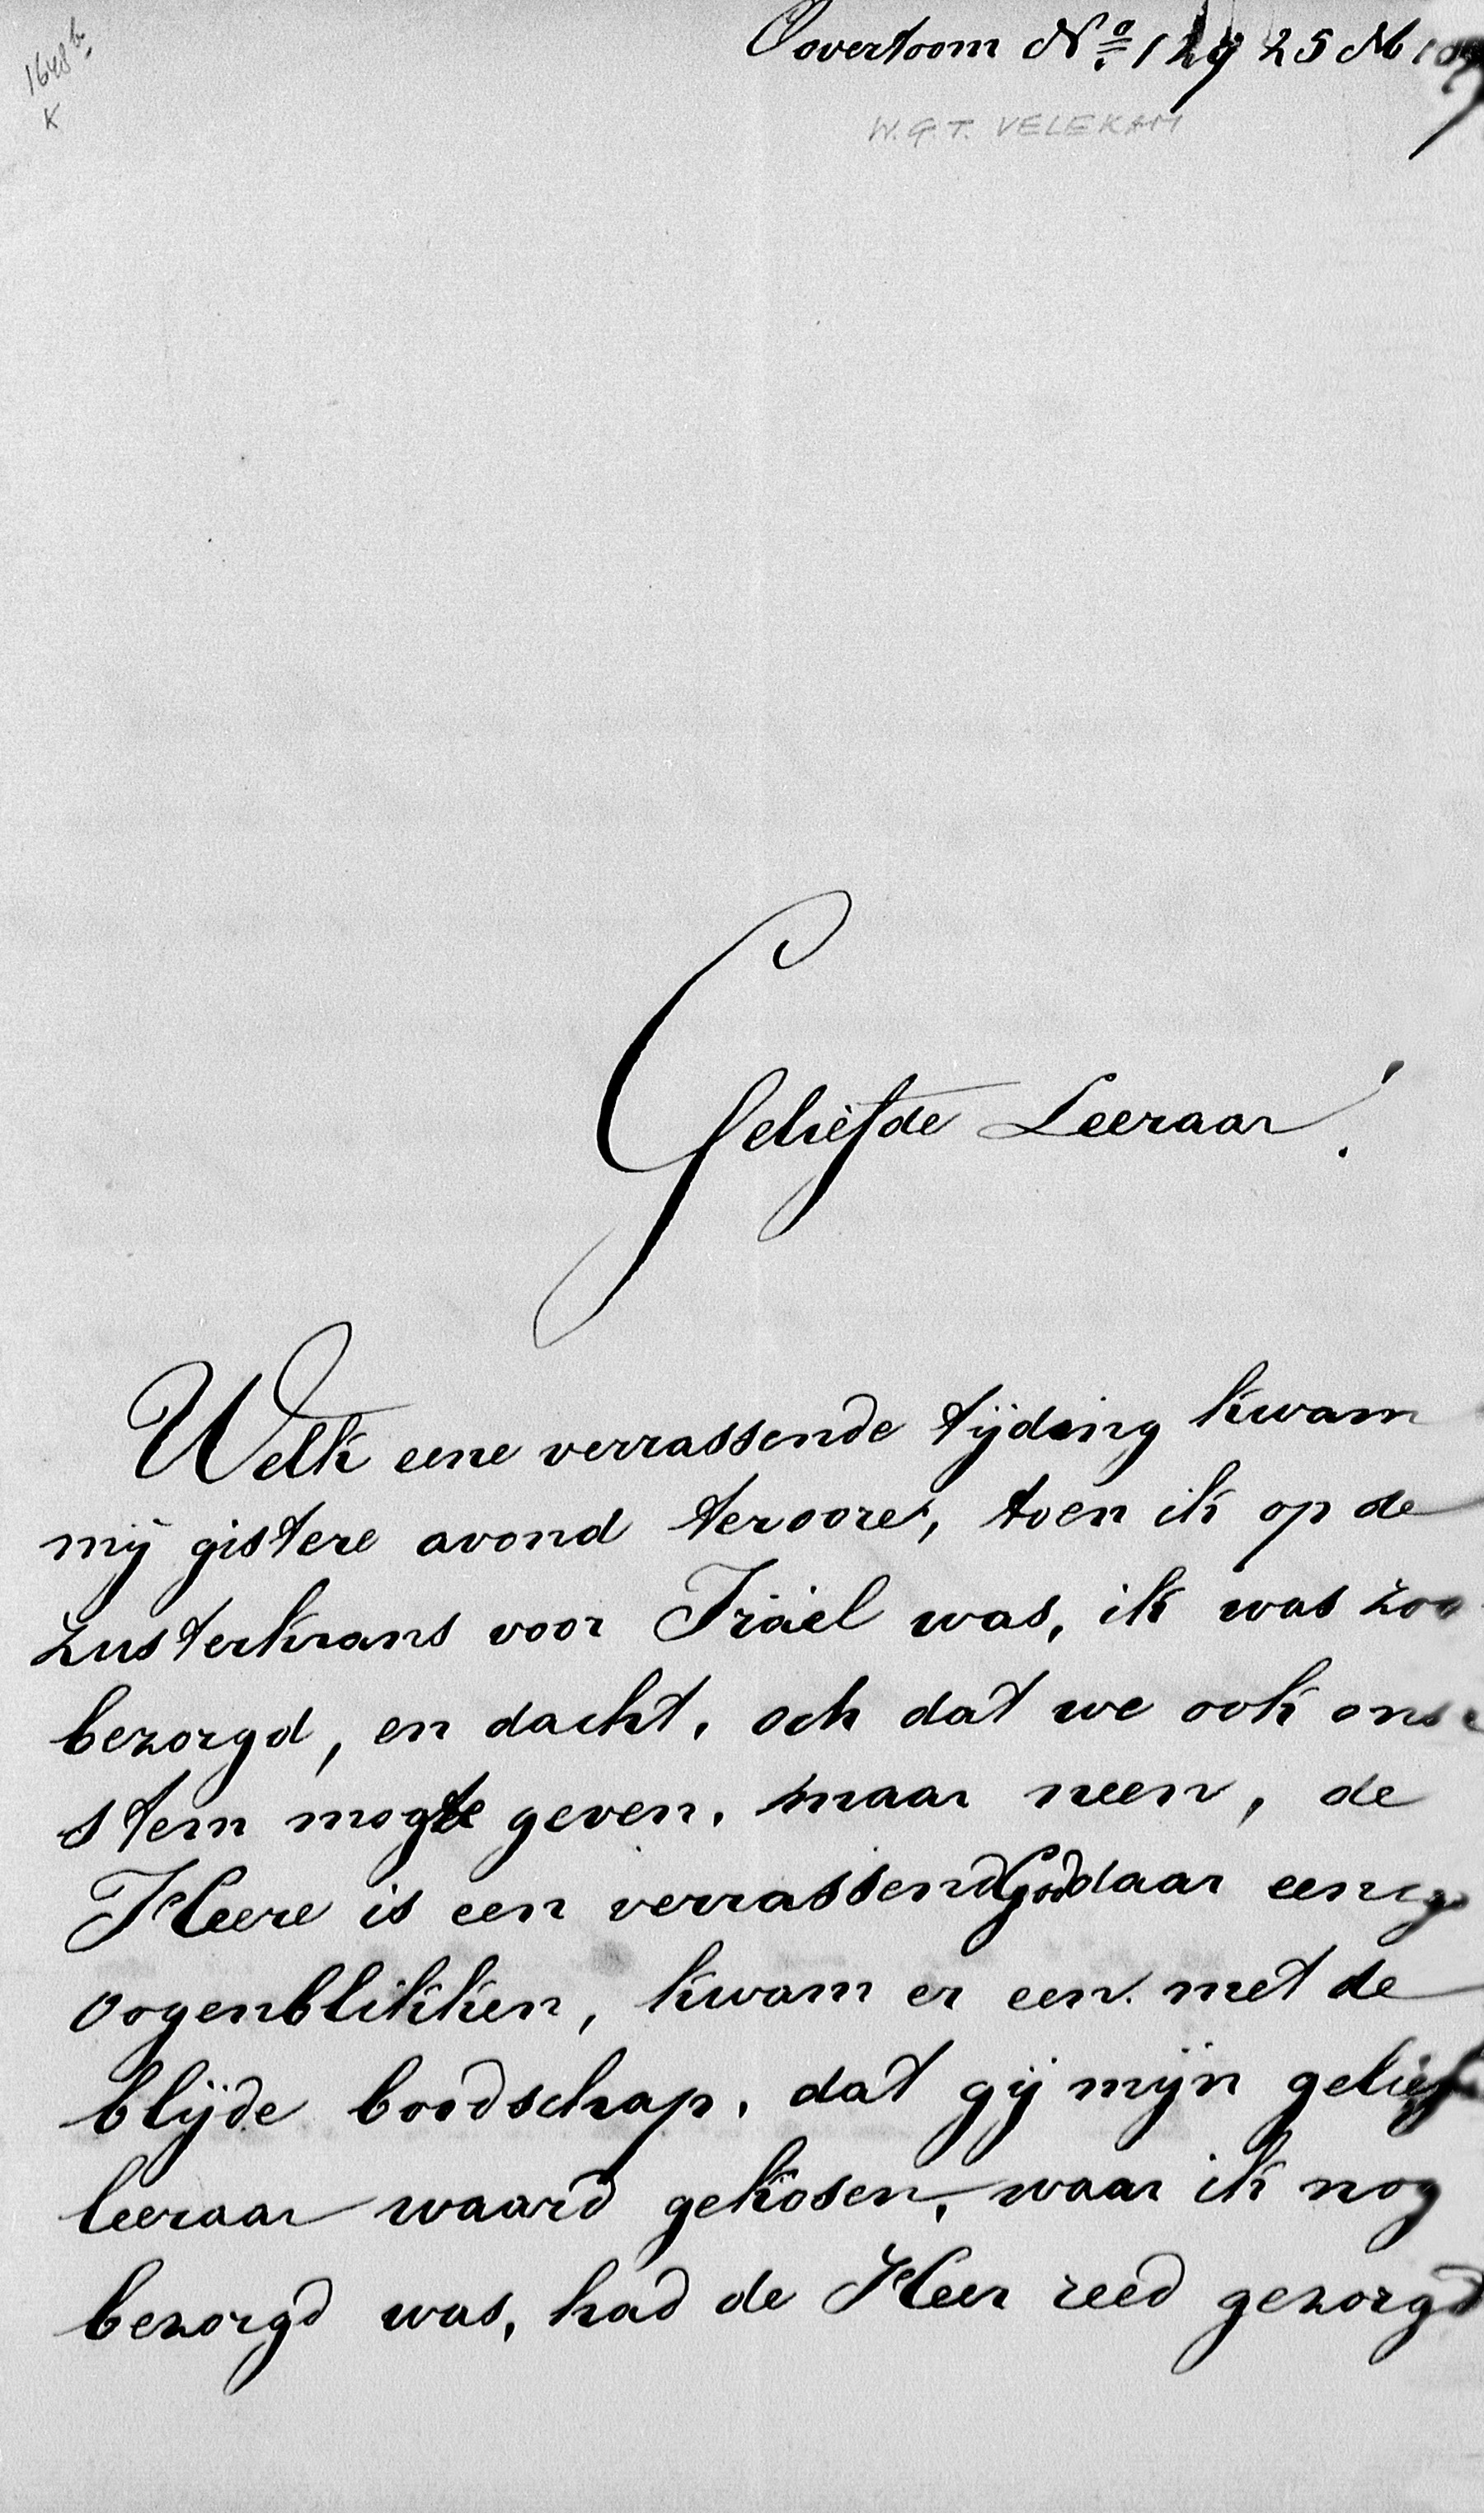 1648 b.
K
Oovertoom No. 129 25 M
W.G.T. VELEKAM
Geliefde Leeraar!
Welk eene verrassende tijding kwam
mij gistere avond teroore, toen ik op de
zusterkrans voor Israel was, ik was zoo
bezorgd, en dacht, och dat we ook onse
stem mogte geven, maar neen, de
Heere is een verrassend God daar eenige
oogenblikken, kwam er een met de
blijde boodschap, dat gij mijn gelief
leeraar waard gekosen, waar ik nog
bezorgd was, had de Heer reed gezorgd